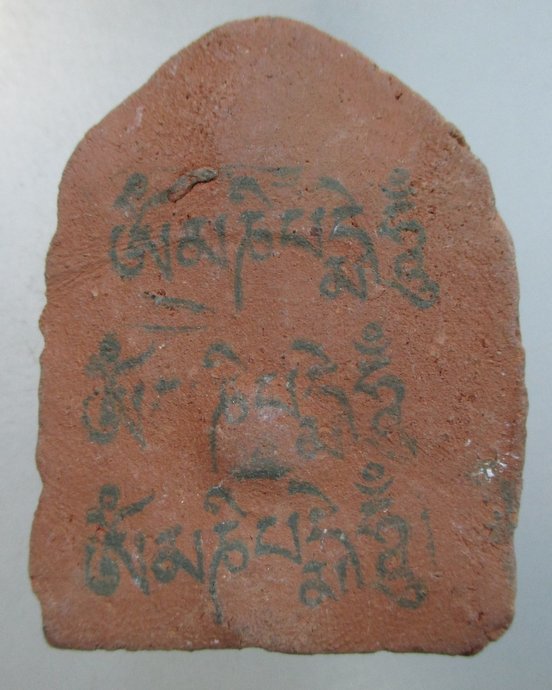 ༀ་མ་ཎི་པདྨེ་ཧཱུྃ
ༀ་ཎི་པདྨེ་ཧཱུྃ
ༀ་མ་ཎི་པདྨེ་ཧཱུྃ།